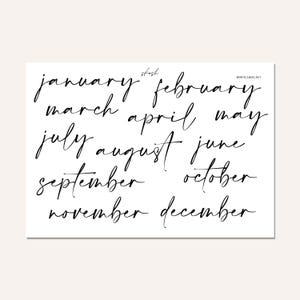 january february
march april may
july august june
september october
november december